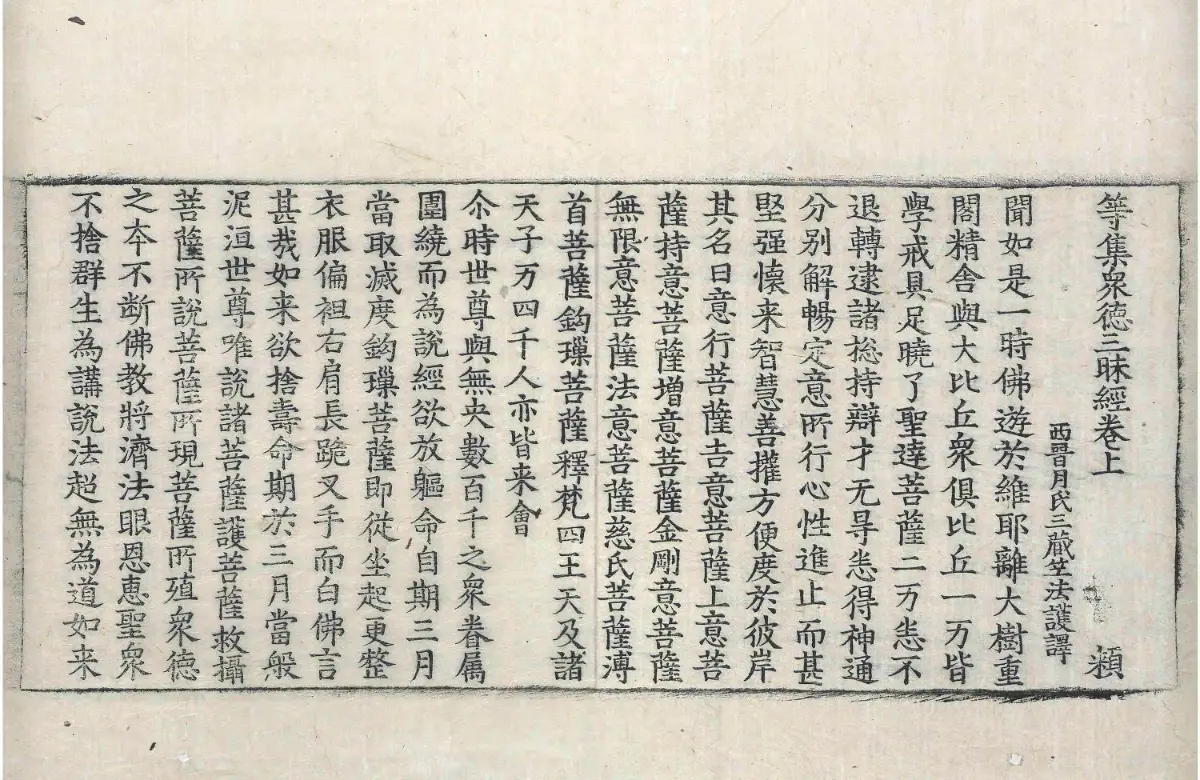 等集衆徳三昧經卷上 頪
西晉月氏三蔵竺法護譯
聞如是一時佛遊於維耶離大樹重
閣精舎與大比丘衆俱比丘一万皆
學戒具足曉了聖達菩薩二万悉不
退轉逮諸捴持辯才无㝵悉得神通
分别解暢定意所行心性進止而甚
堅强懐来智慧善攉方便度於彼岸
其名曰意行菩薩吉意菩薩上意菩
薩持意菩薩增意菩薩金剛意菩薩
無限意菩薩法意菩薩慈氏菩薩溥
首菩薩鈎璅菩薩釋梵四王天及諸
天子万四千人亦皆来會
尒時世尊與無央數百千之衆眷属
圍繞而為說經欲放軀命自期三月
當取滅度鈎璅菩薩即從坐起更整
衣服偏袒右肩長跪叉手而白佛言
甚㢤如来欲捨壽命期於三月當般
泥洹世尊唯說諸菩薩護菩薩救攝
菩薩所說菩薩所現菩薩所殖衆徳
之夲不断佛教將濟法眼恩惠聖衆
不捨群生為講說法超無為道如来